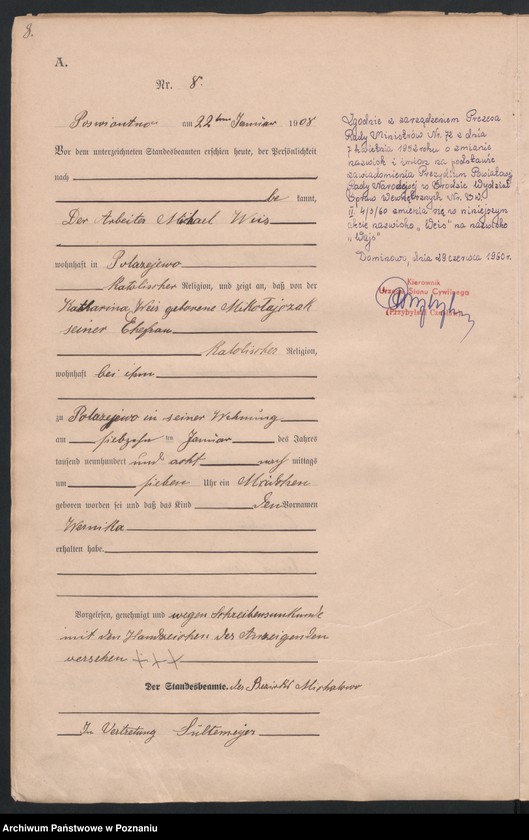 8.
A.
Nr. 8.
am 22ten Januar 1908
Vor dem unterzeichneten Standesbeamten erschien heute, der Persönlichkeit
nach
be kannt,
Der Arbeiter Michael Weis
wohnhaft in Polazejewo
Katolischer Religion, und zeigt an, daß von der
Katharina Weis geborene Mikołajczak
seiner Ehefrau
Katolischer Religion,
wohnhaft bei ihm
zu Polazejewo in seiner Wohnung
am siebzehn ten Januar des Jahres
tausend neunhundert und acht nach mittags
um sieben Uhr ein Mädchen
geboren worden sei und daß das Kind den Vornamen
Wernika
erhalten habe.
Vorgelesen, genehmigt und wegen Schreibensunkunde
mit den Handzeichen des Anzeigenden
versehen +++
Der Standesbeamte. des Bezirks
In Vertretung
Zgodnie z zarządzeniem Prezesa
Rady Ministrów Nr. 72 z dnia
7 kwietnia 1952 roku o zmianie
nazwisk i imion na podstawie
zawiadomienia Prezydium Powiatowej
Rady Narodowej w Środzie Wydział
Spraw Wewnętrznych Nr.
II. 4/5/60 zmienia się w niniejszym
akcie nazwisko „Weis" na nazwisko
„Wajs"
Dominowo, dnia 29 czerwca 1960r.
Kierownik
Urzędu Stanu Cywilnego
Archiwum Państwowe w Poznaniu